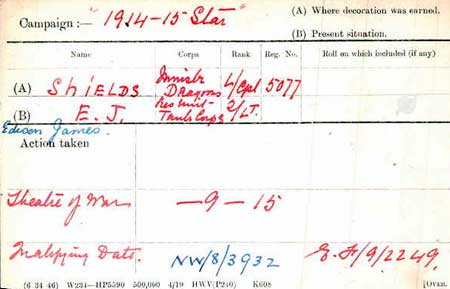 Campaign :— "1914-15 Star"
(A) Where decoration was earned.
(B) Present situation.
Name Corps Rank Reg. No. Roll on which included (if any)
(A) ShIELDS Innisk Dragons L/Cpl 5077
(B) E. J. Res Unit - Tank Corps 2/Lt.
Edison James.
Action taken
Theatre of War —9—15
Qualifying Date. NW/8/3932 E.F/9/2249.
(6 34 46) W234—HP5590 500,000 4/19 HWV(P240) K608 [OVER.